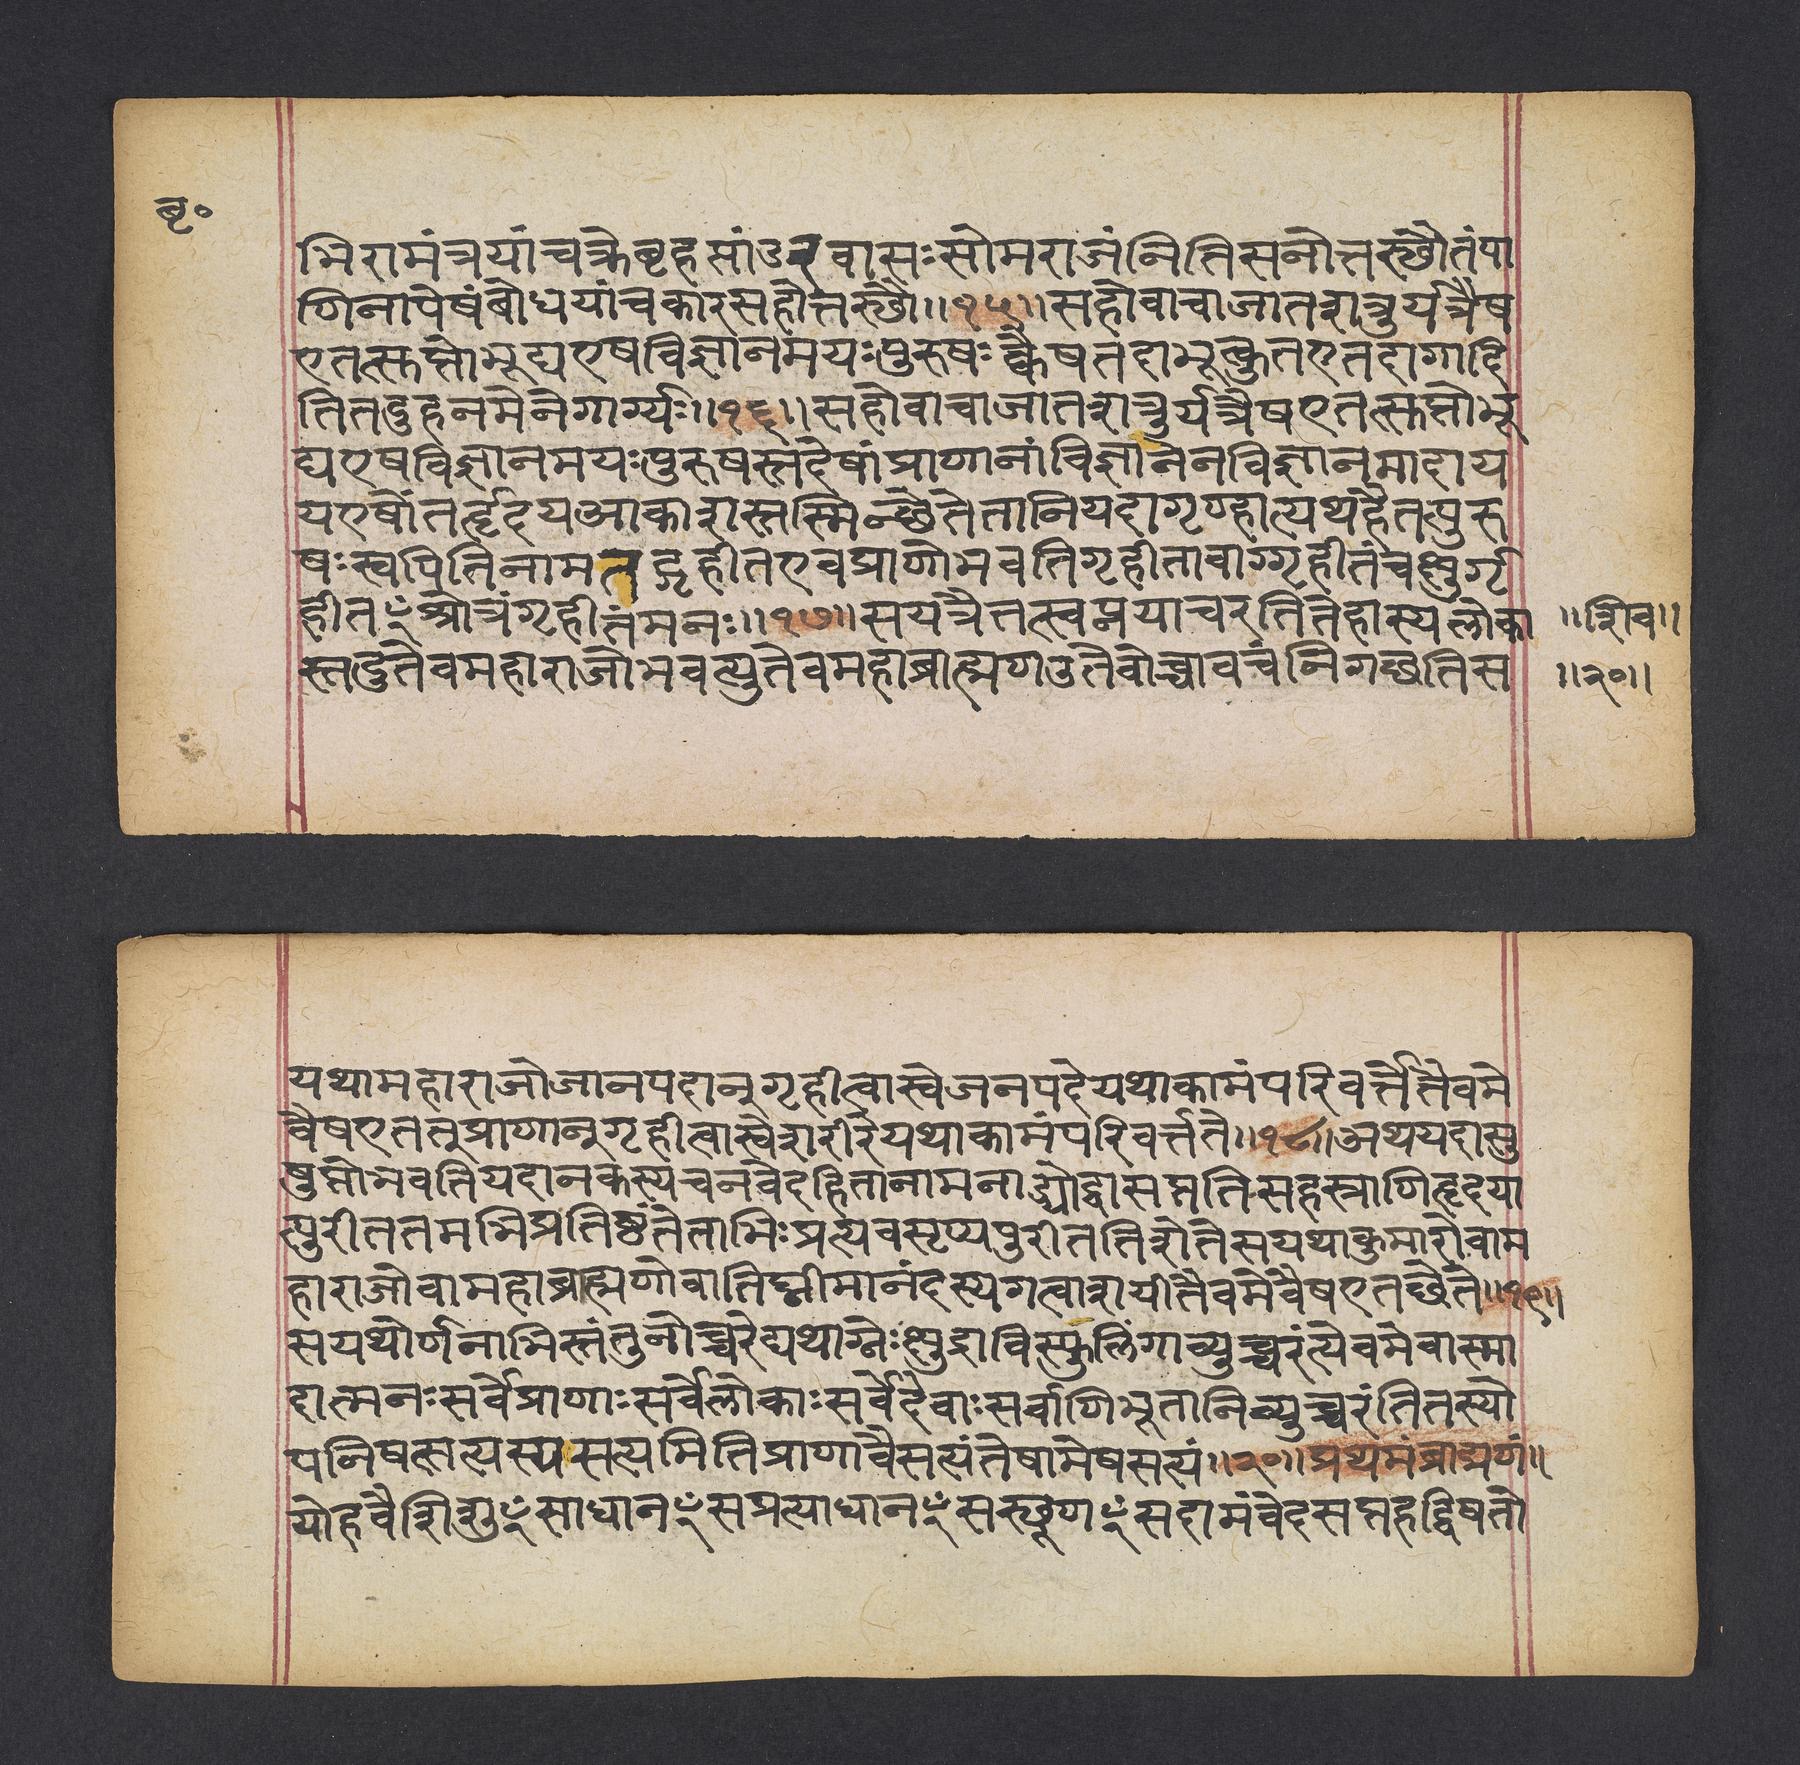 बृ॰
भिरामंत्रयांचक्रेबृहसांडरवासःसोमराजंनितिसनोत्तस्छौतंपा
णिनापेषंबोधयांचकारसहोत्तस्छौ॥१५॥सहोवाचाजातशत्रुर्यत्रैष
एतत्सुप्तोभूद्यएषविज्ञानमयःपुरुषःक्वैषतदाभूत्कुतएतदागादि
तितदुहनमेनेगार्ग्यः॥१६॥सहोवाचाजातशत्रुर्यत्रैषएतत्सुप्तोभू
द्यएषविज्ञानमयःपुरुषस्तदेषांप्राणानांविज्ञानेनविज्ञानमादाय
यएषोंतर्हृदयआकाशस्तस्मिन्छेतेतानियदागृण्हात्यथहैतत्पुरु
षःस्वपितिनामतद्गृहीतएवप्राणोभवतिगृहीतावाग्गृहीतंचक्षुर्गृ
हीतꣳश्रोत्रंगृहीतंमनः॥१७॥सयत्रैतत्स्वप्नयाचरतितेहास्यलोका
॥शिव॥
स्तदुतेवमहाराजोभवत्युतेवमहाब्राह्मणउतेवोच्चावचंनिगछतिस
॥२०॥
यथामहाराजोजानपदानुगृहीत्वास्वेजनपदेयथाकामंपरिवर्त्तेतैवमे
वैषएतत्तुप्राणानुगृहीत्वास्वेशरीरेयथाकामंपरिवर्त्तते॥१८॥अथयदासु
षुप्तोभवतियदानकस्यचनवेदहितानामनाड्योद्वासप्ततिसहस्राणिहृदया
त्पुरीततमभिप्रतिष्ठंतेताभिःप्रत्यवसृप्यपुरीततिशेतेसयथाकुमारोवाम
हाराजोवामहाब्राह्मणोवातिघ्नीमानंदस्यगत्वाशयीतैवमेवैषएतछेते॥१९॥
सयथोर्णनाभिस्तंतुनोच्चरेद्यथाग्नेःक्षुद्राविस्फुलिंगाव्युच्चरंत्येवमेवास्मा
दात्मनःसर्वेप्राणाःसर्वेलोकाःसर्वेदेवाःसर्वाणिभूतानिव्युच्चरंतितस्यो
पनिषत्सत्यस्यसत्यमितिप्राणावैसत्यंतेषामेषसत्यं॥२०॥प्रथमंब्राह्मणं॥
योहवैशिशुꣳसाधानꣳसप्रत्याधानꣳसस्छूणꣳसदामंवेदसप्तहद्विषतो